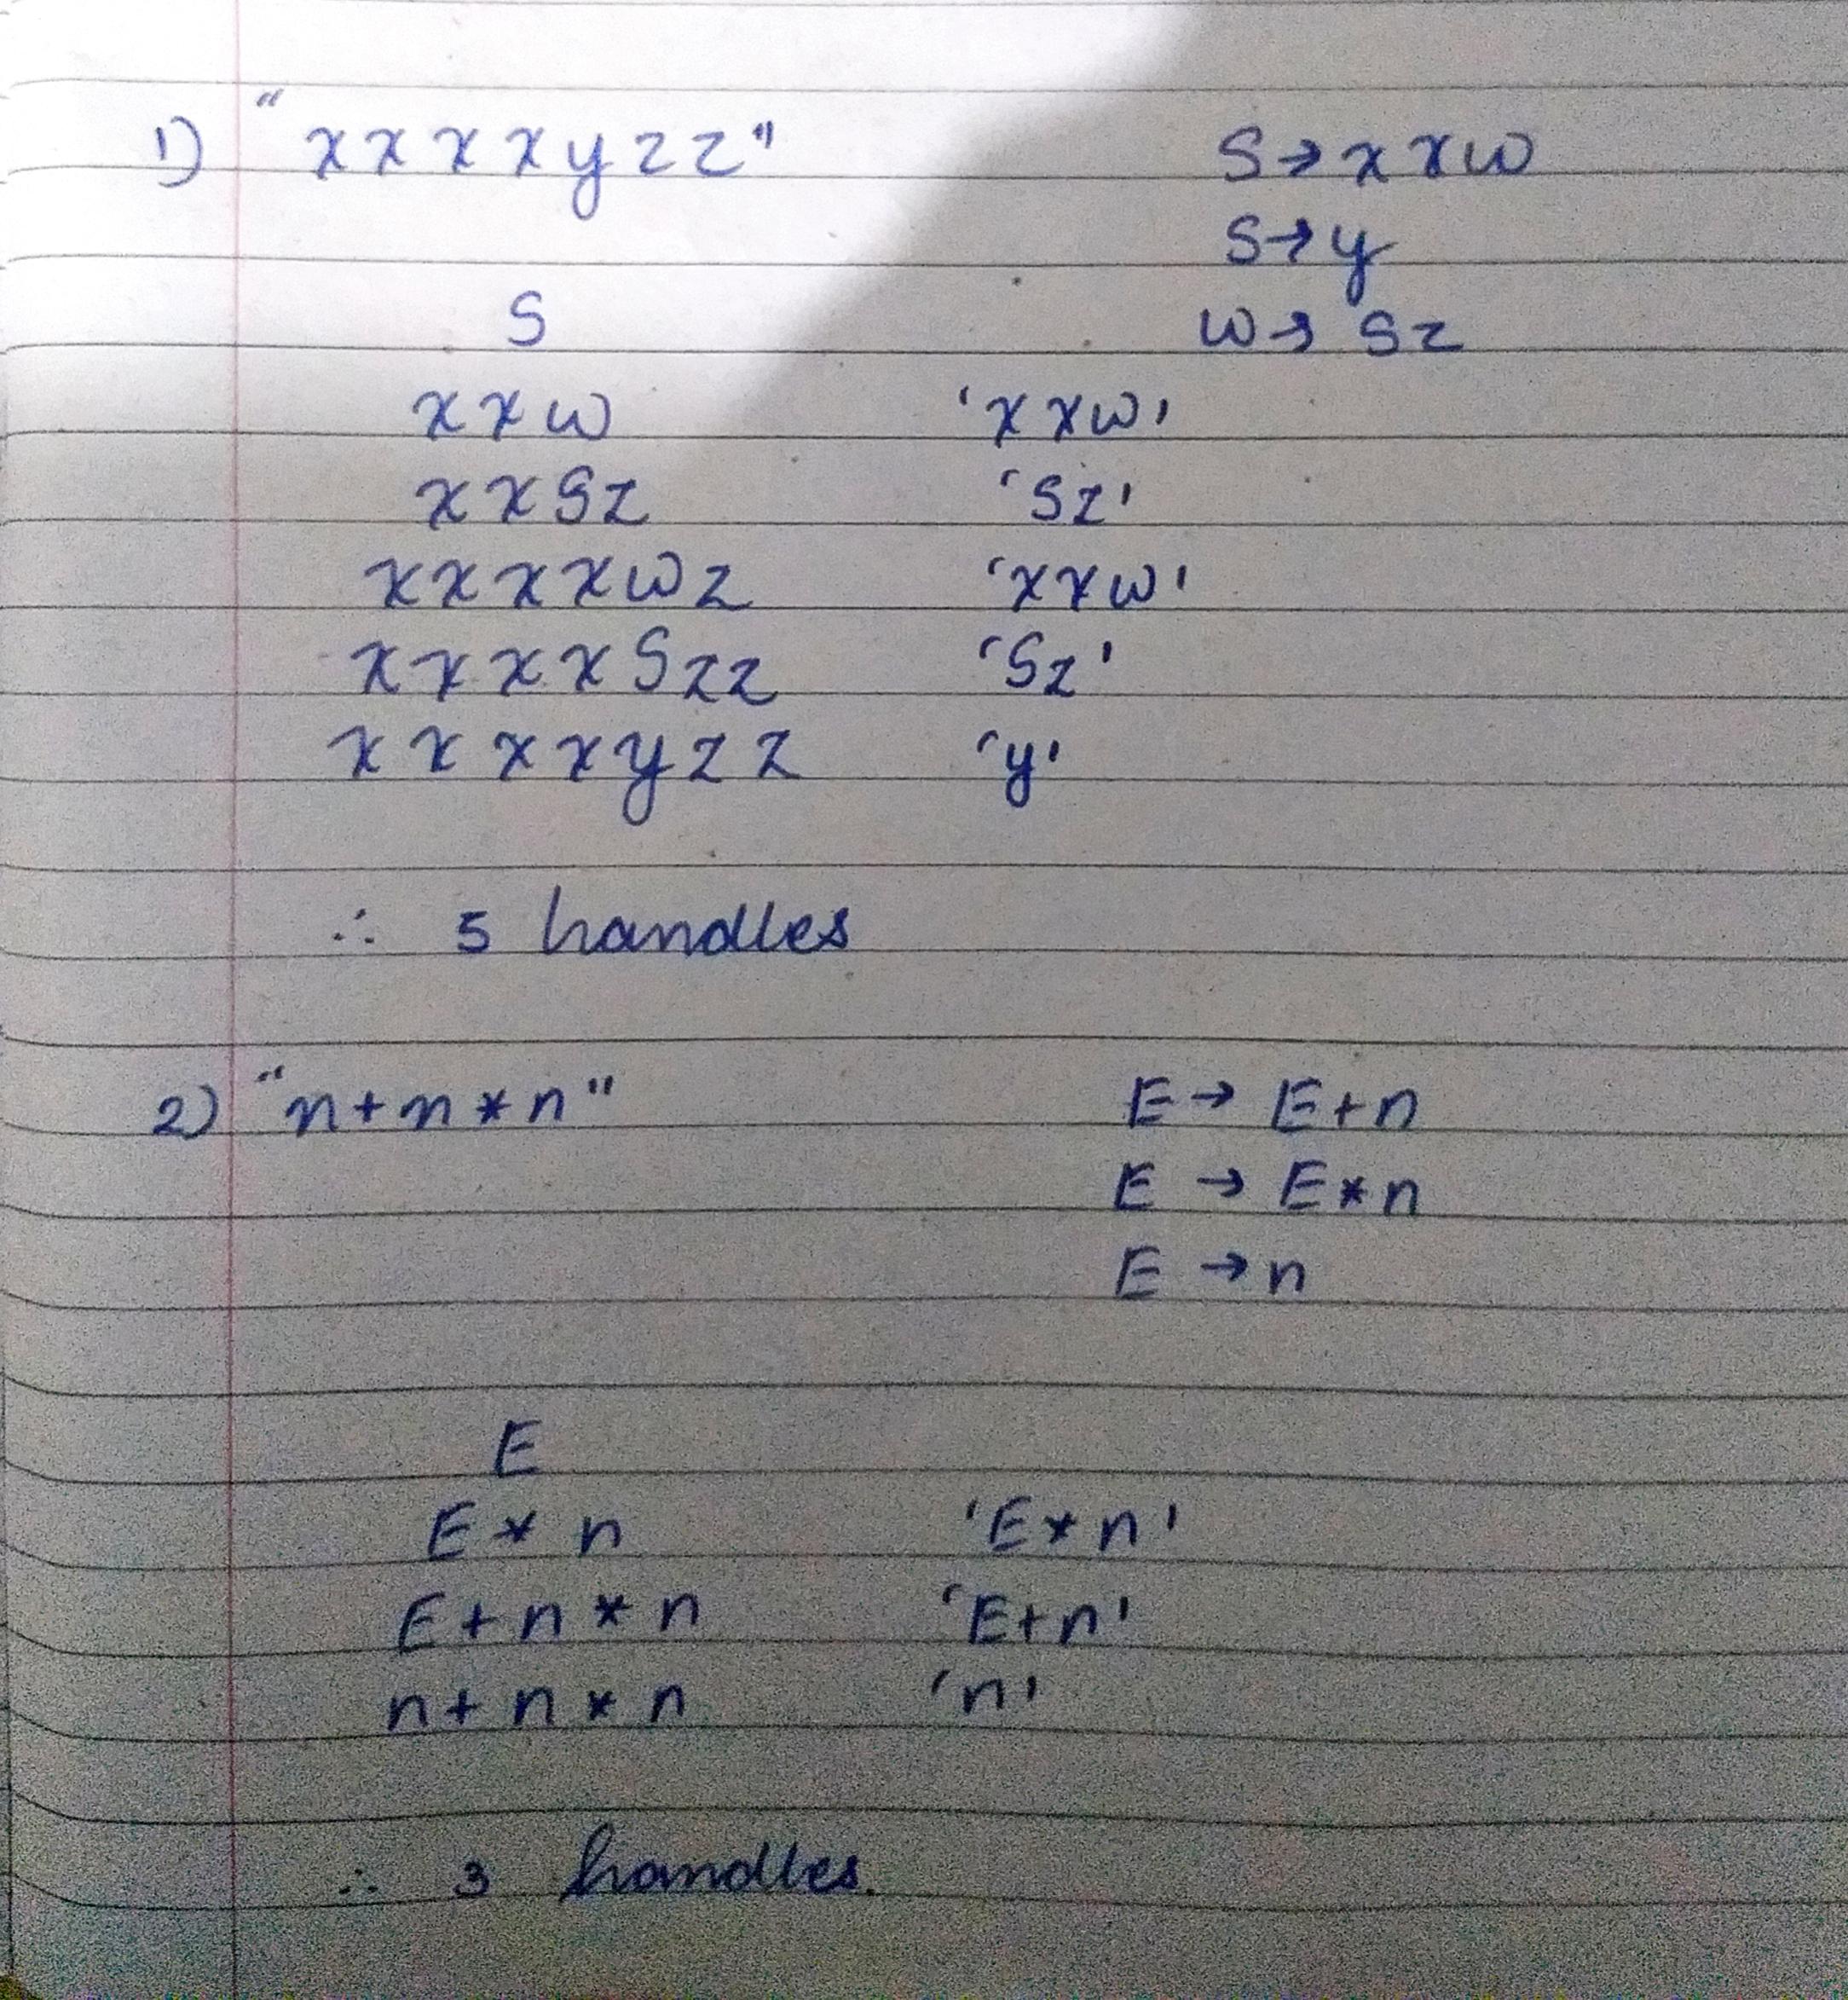 1) "xxxxyzz" S→xxw
S→y
S
w→Sz
xxw 'xxw'
xxSz 'Sz'
xxxxwz 'xxw'
xxxxSzz 'Sz'
xxxxyzz 'y'
∴ 5 handles
2) "n+n*n" E→E+n
E→E*n
E→n
E
E*n 'E*n'
E+n*n 'E+n'
n+n*n 'n'
∴ 3 handles.